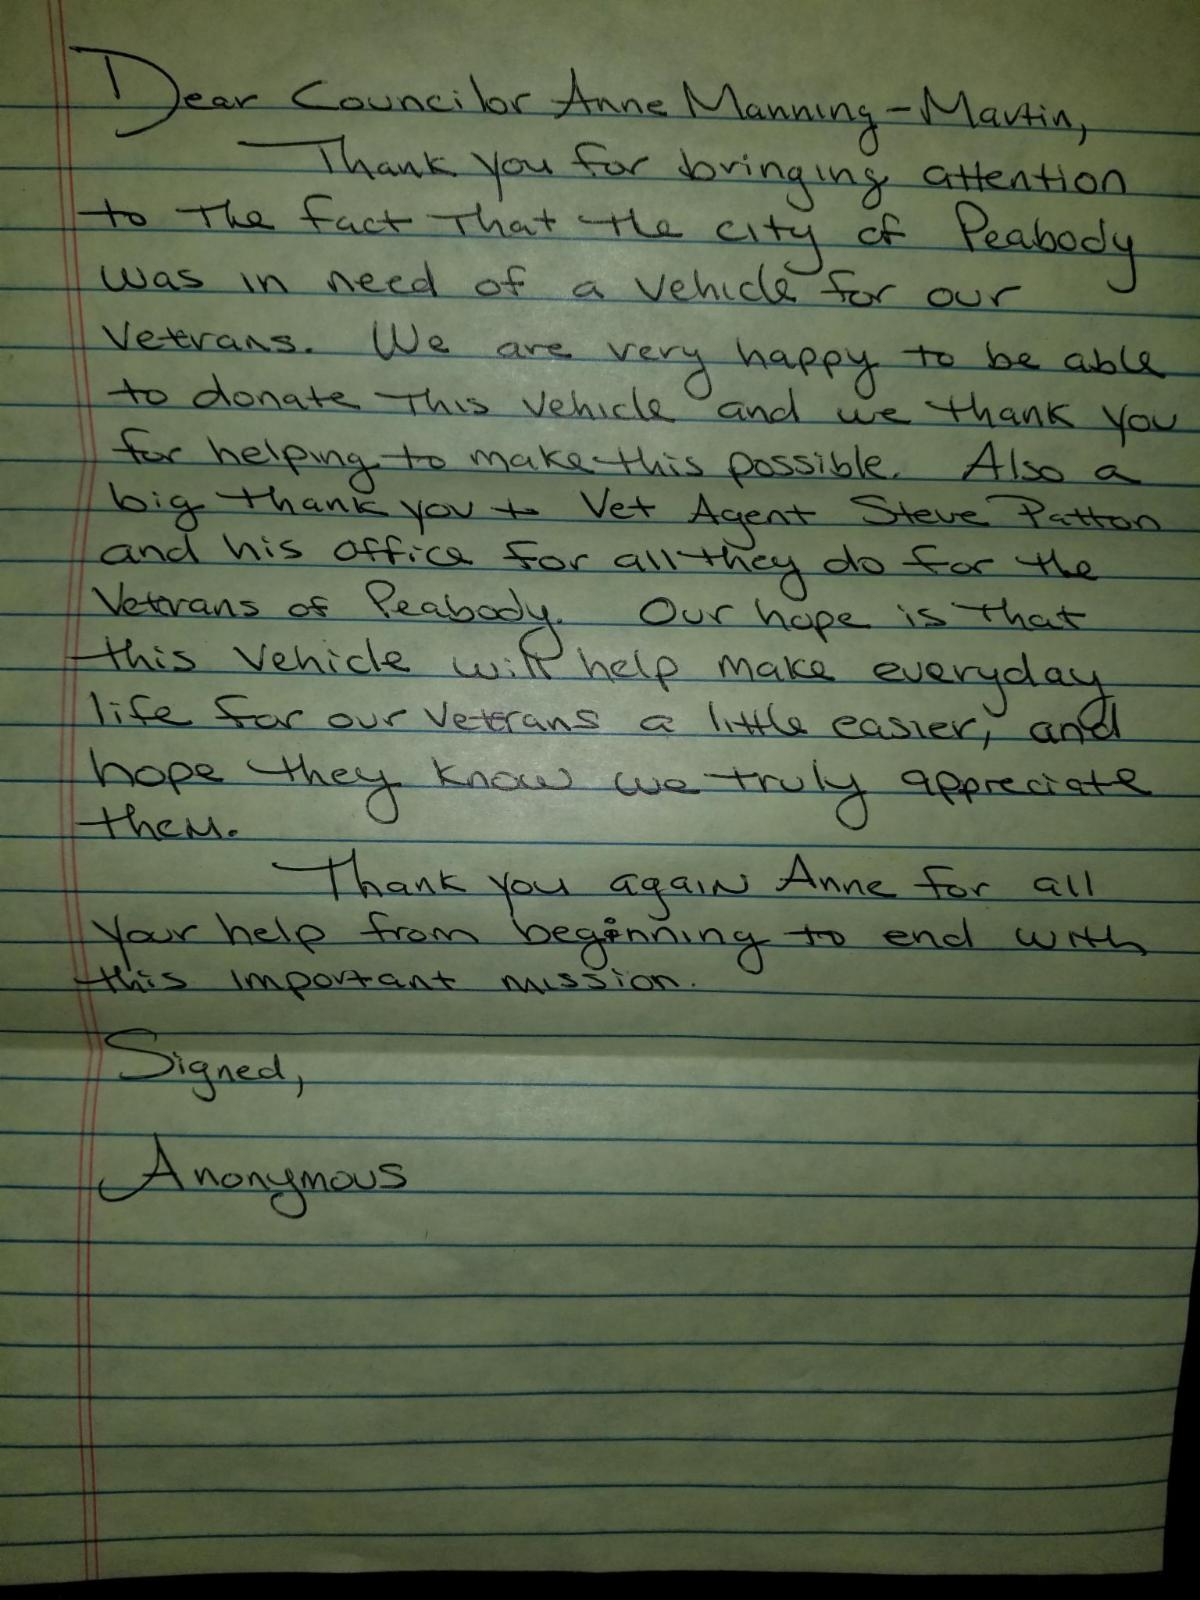 Dear Councilor Anne Manning-Martin,
Thank you for bringing attention
to the fact that the city of Peabody
was in need of a vehicle for our
Vetrans. We are very happy to be able
to donate this vehicle and we thank you
for helping to make this possible. Also a
big thank you to Vet Agent Steve Patton
and his office for all they do for the
Vetrans of Peabody. Our hope is that
this vehicle will help make everyday
life for our Vetrans a little easier, and
hope they know we truly appreciate
them.
Thank you again Anne for all
your help from beginning to end with
this important mission.
Signed,
Anonymous